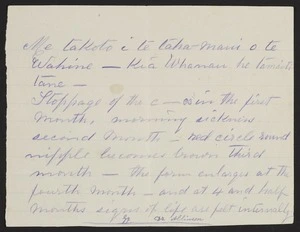 Me takoto i te taha-maui o te
Wahine — Kia Whanau he tamaiti
tane —
Stoppage of the c—s in the first
month, morning sickness
second month — red circle round
nipple becomes brown third
month — the form enlarges at
the fourth month — and at 4 and half
months signs of life are felt internally